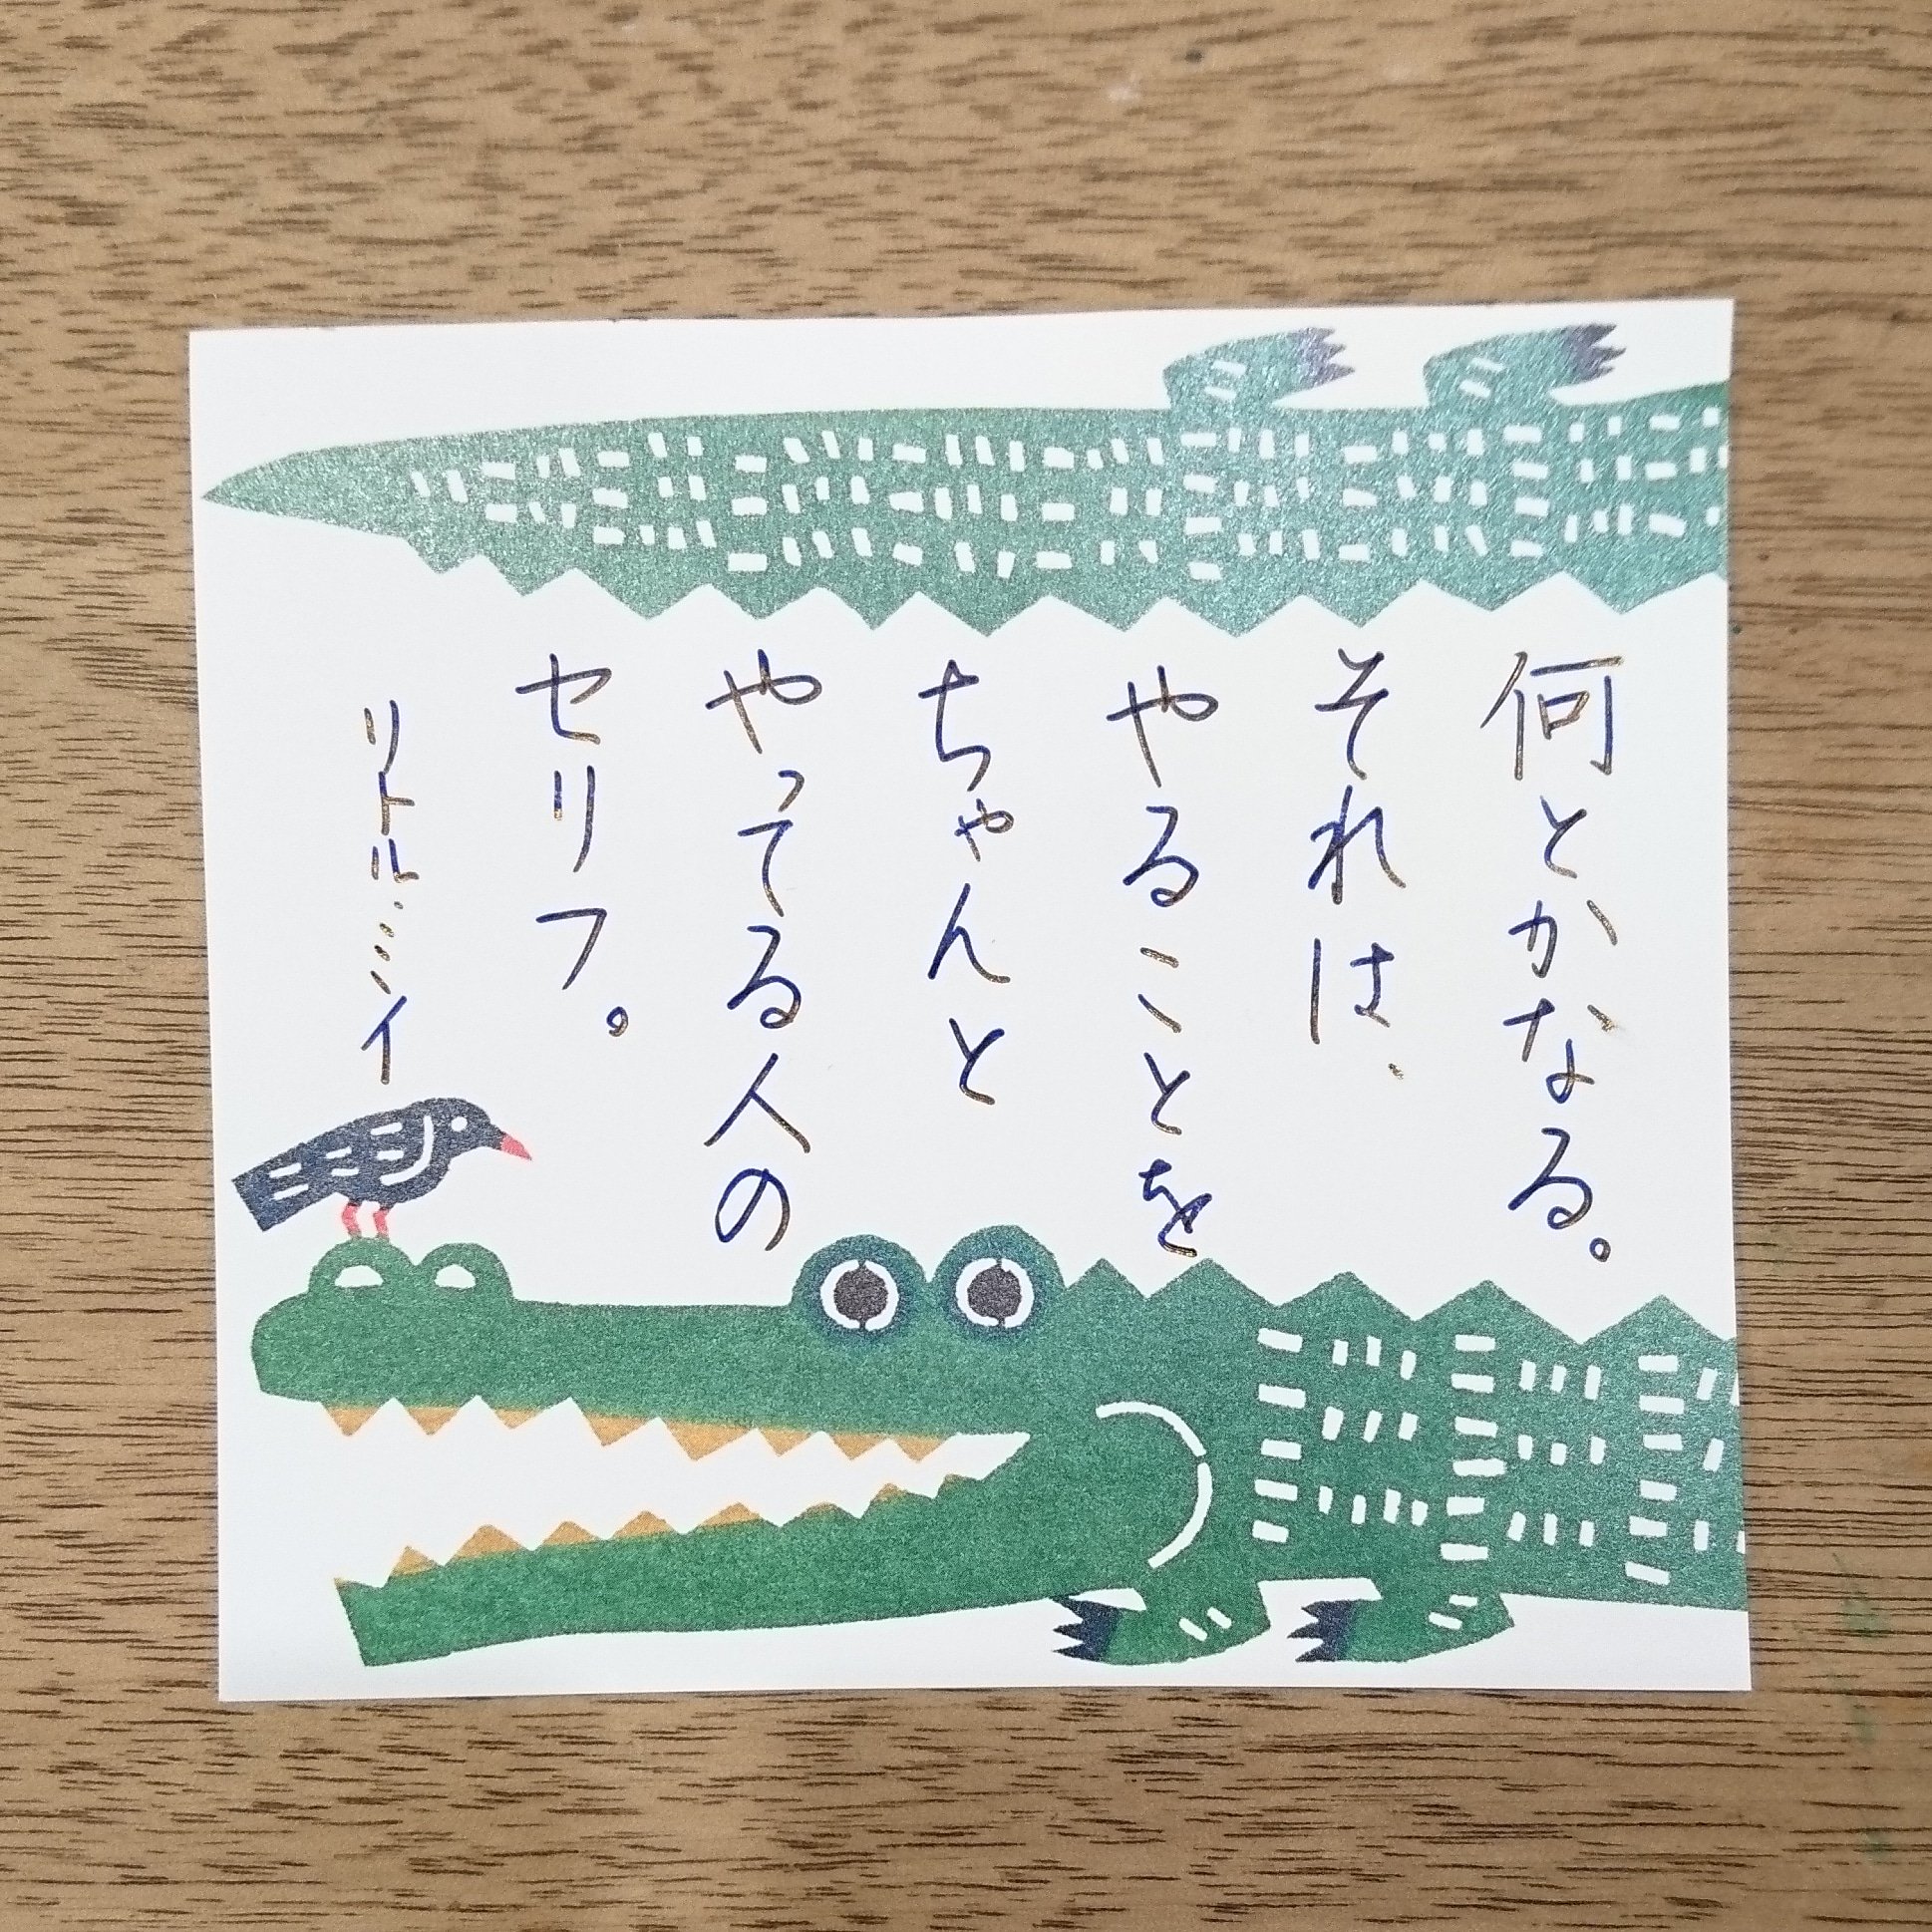 何とかなる。
それは、
やることを
ちゃんと
やってる人の
セリフ。
リトル・ミイ